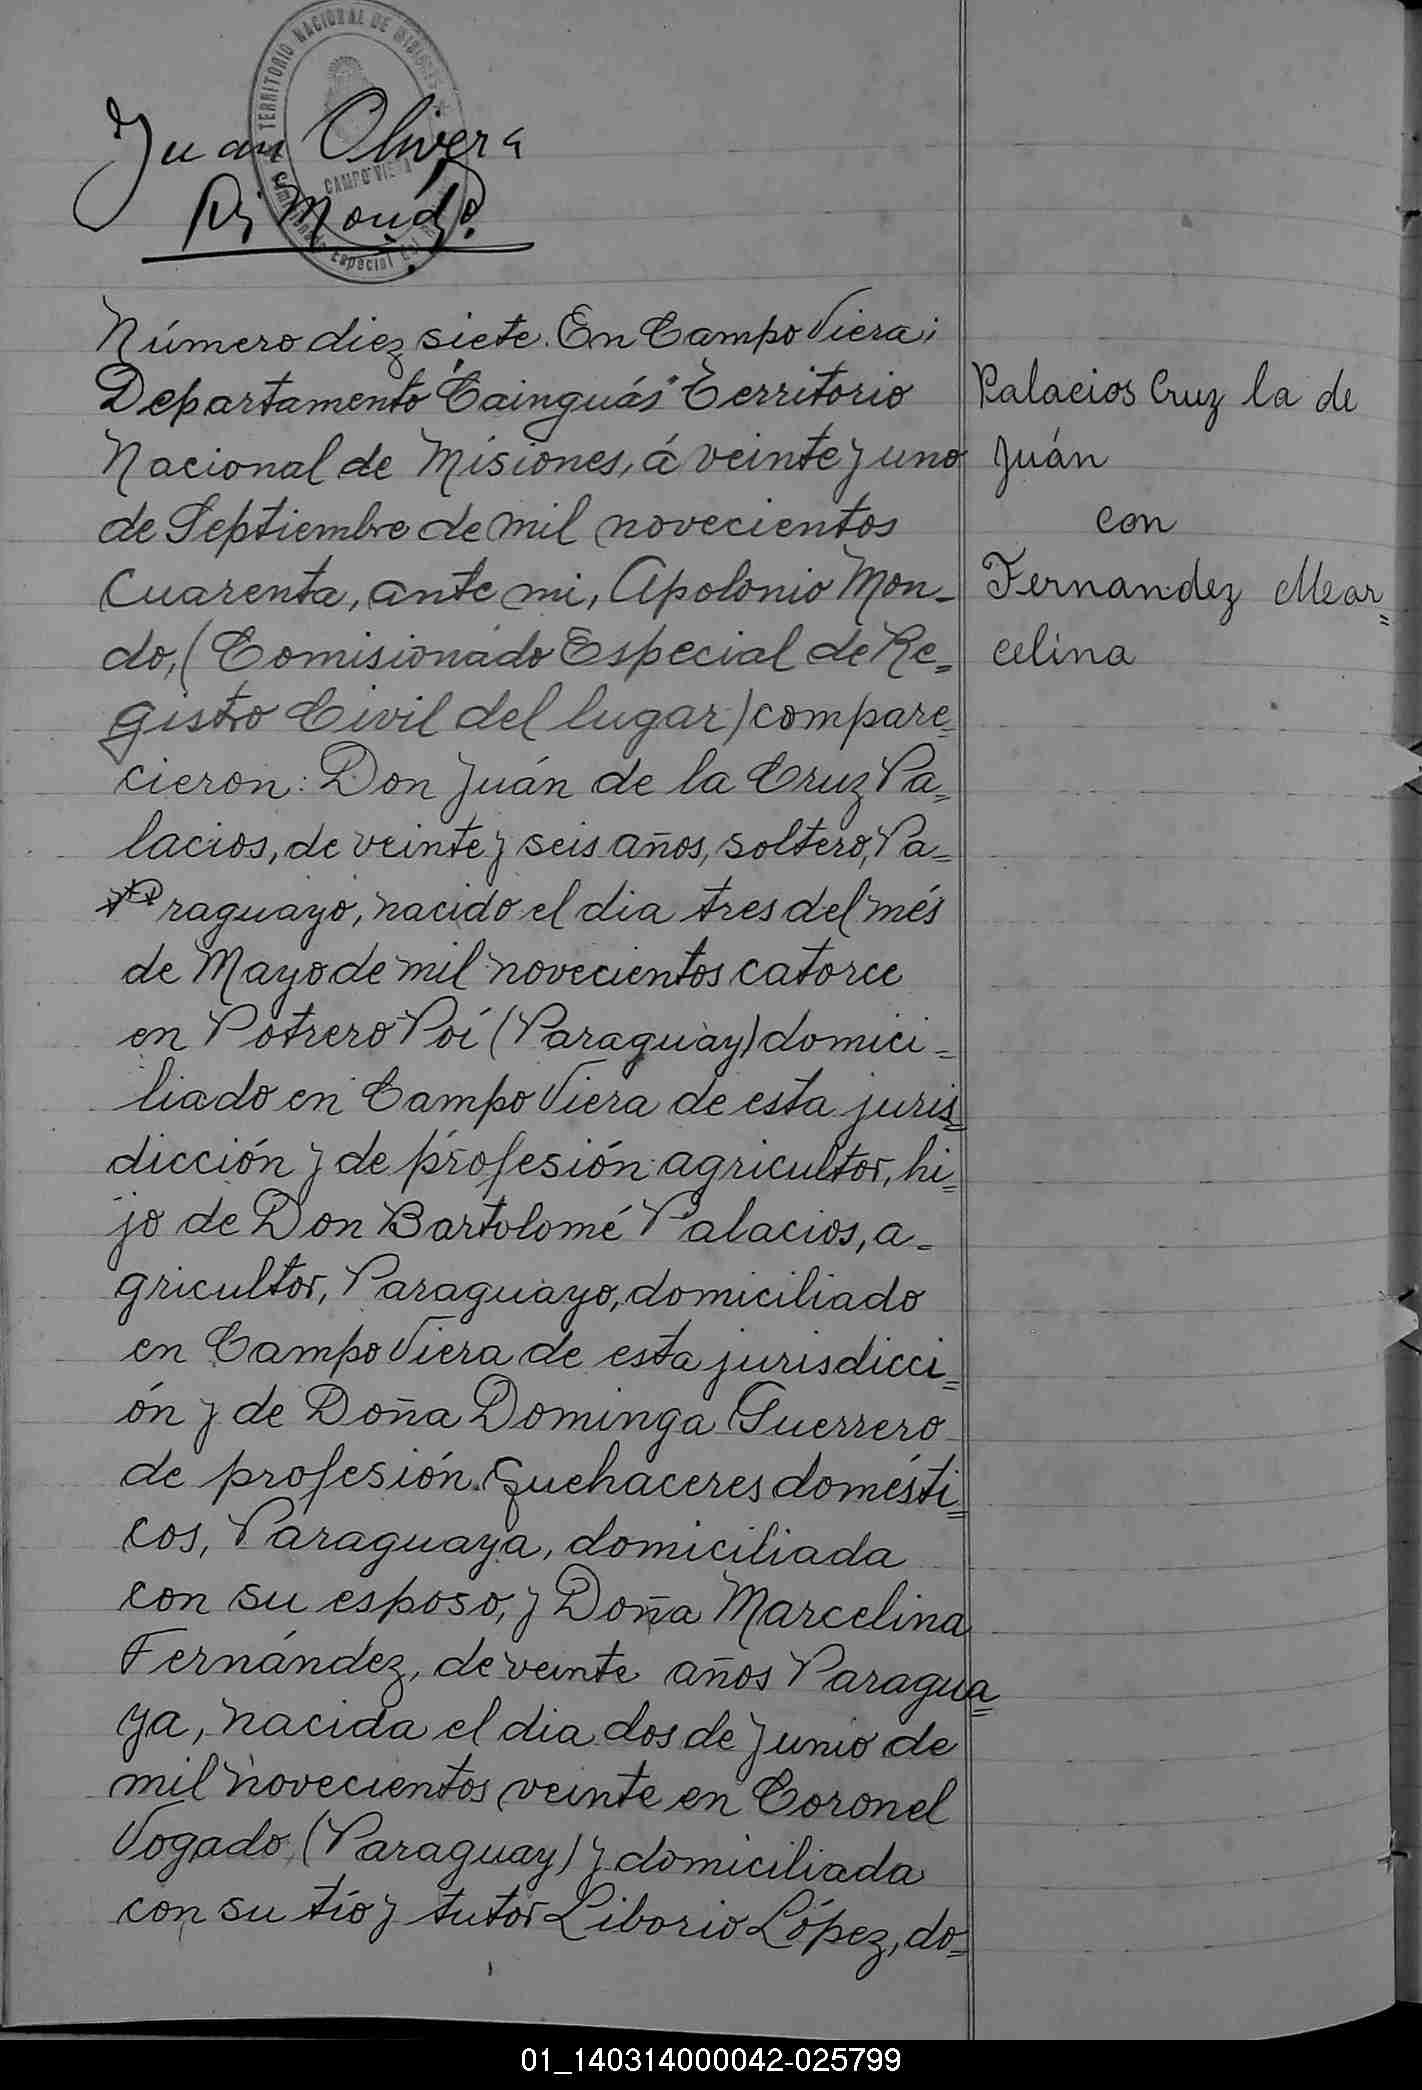 TERRITORIO NACIONAL DE MISIONES
Juan Olivera
CAMPO VIERA
Mondo
Especial
Número diez siete. En Campo Viera;
Departamento "Cainguás" Territorio
Nacional de Misiones, á veinte y uno
de Septiembre de mil novecientos
cuarenta, ante mi, Apolonio Mon-
do, (Comisionado Especial de Re=
gistro Civil del lugar) compare=
cieron: Don Juán de la Cruz Pa=
lacios, de veinte y seis años, soltero, Pa=
raguayo, nacido el dia tres del més
de Mayo de mil novecientos catorce
en Potrero Poí (Paraguay) domici=
liado en Campo Viera de esta juris=
dicción y de profesión agricultor, hi=
jo de Don Bartolomé Palacios, a=
gricultor, Paraguayo, domiciliado
en Campo Viera de esta jurisdicci=
ón y de Doña Dominga Guerrero
de profesión Quehaceres domésti=
cos, Paraguaya, domiciliada
con su esposo, y Doña Marcelina
Fernández, de veinte años Paragua=
ya, nacida el dia dos de Junio de
mil novecientos veinte en Coronel
Vogado (Paraguay) y domiciliada
con su tío y tutor Liborio López, do=
Palacios Cruz la de
Juán
con
Fernandez Mear=
celina
01_140314000042-025799